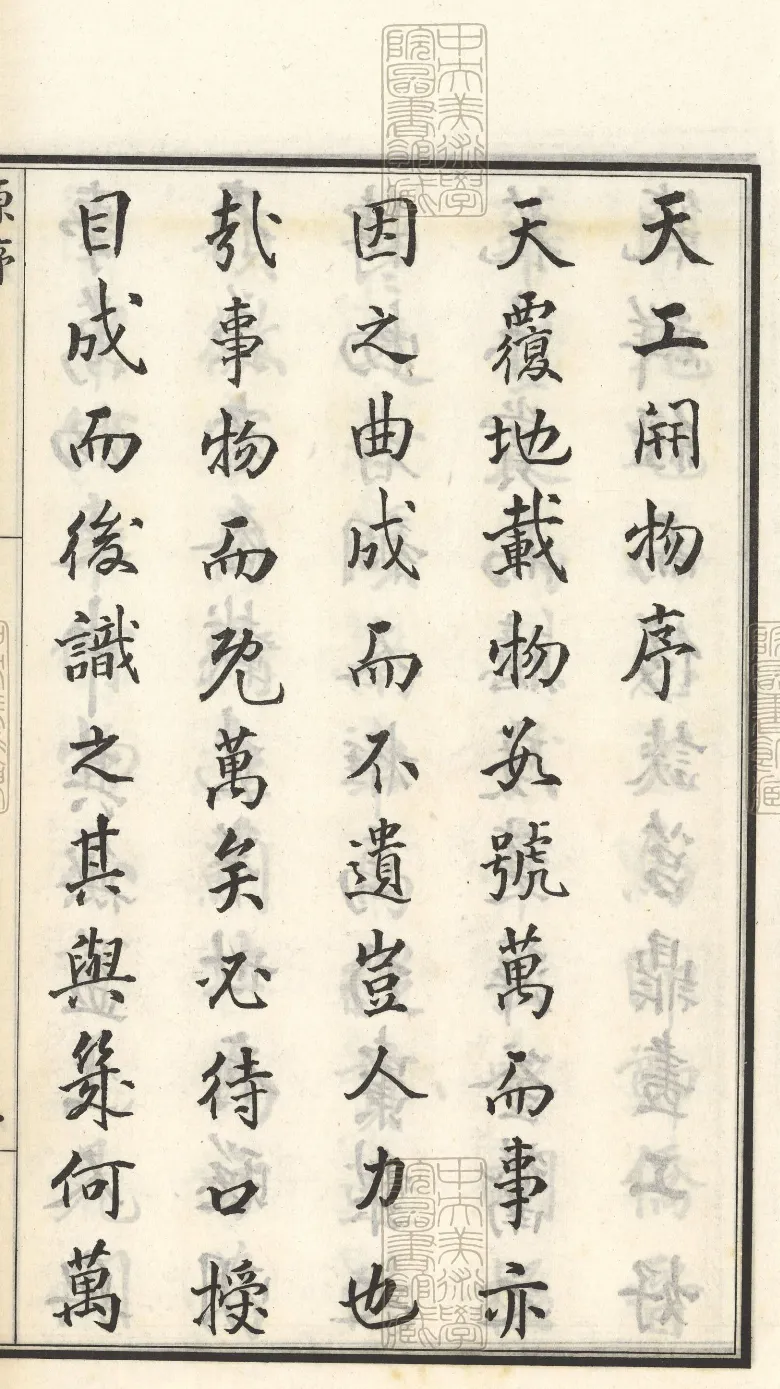 天工開物序
天覆地載物數號萬而事亦
因之曲成而不遺豈人力也
哉事物而既萬矣必待口授
目成而後識之其與幾何萬
原序
中央美術學
院圖書館藏